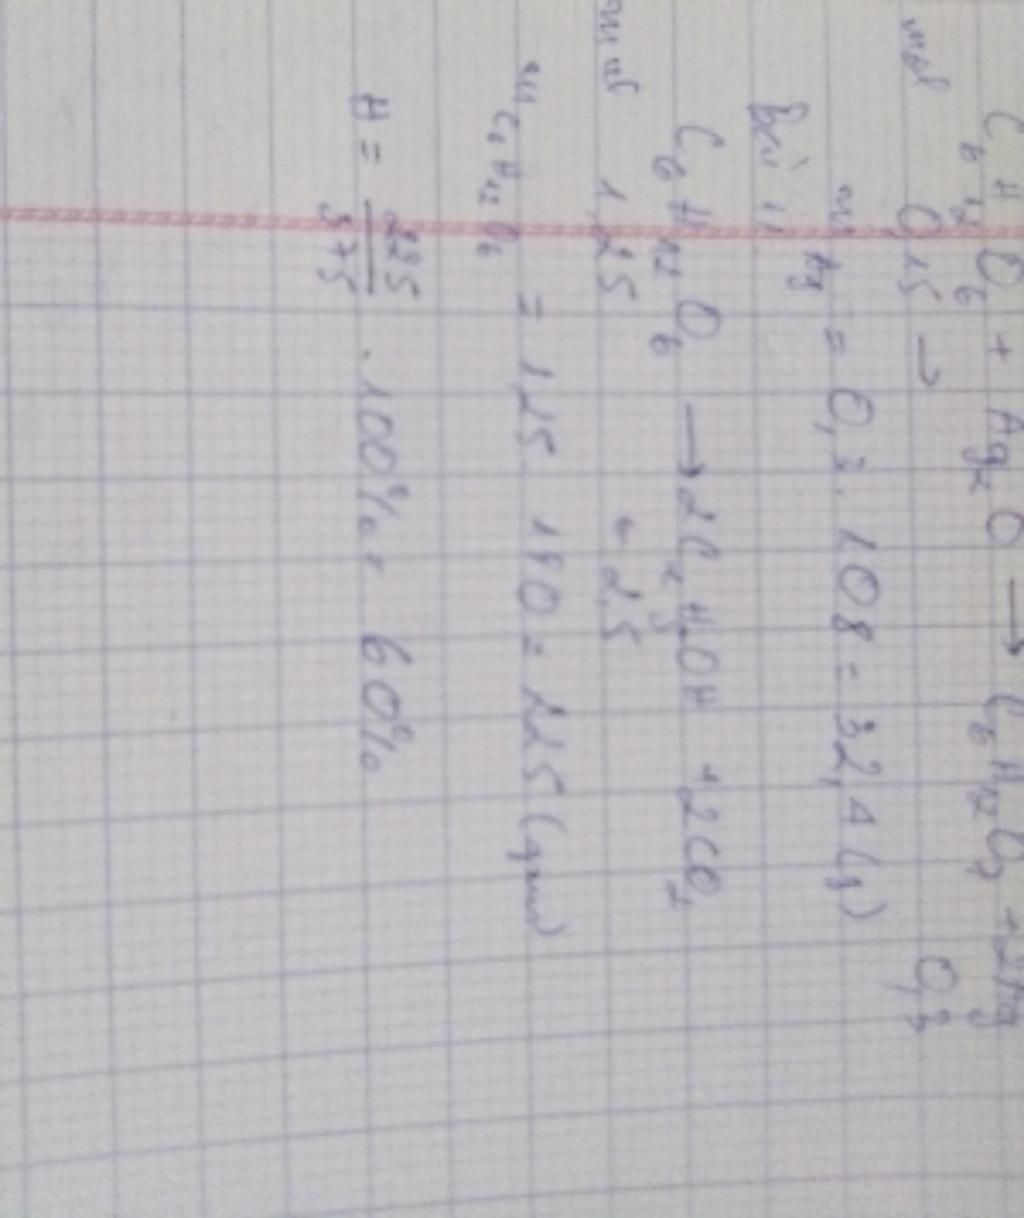 C6H12O6 + Ag2O → C6H12O7 + 2Ag
mol 0,15 → 0,3
mAg = 0,3 . 108 = 32,4 (g)
Bài 11
C6H12O6 → 2C2H5OH + 2CO2
kmol 1,25 ← 2,5
mC6H12O6 = 1,25 . 180 = 225 (gam)
H = 225/375 . 100% = 60%